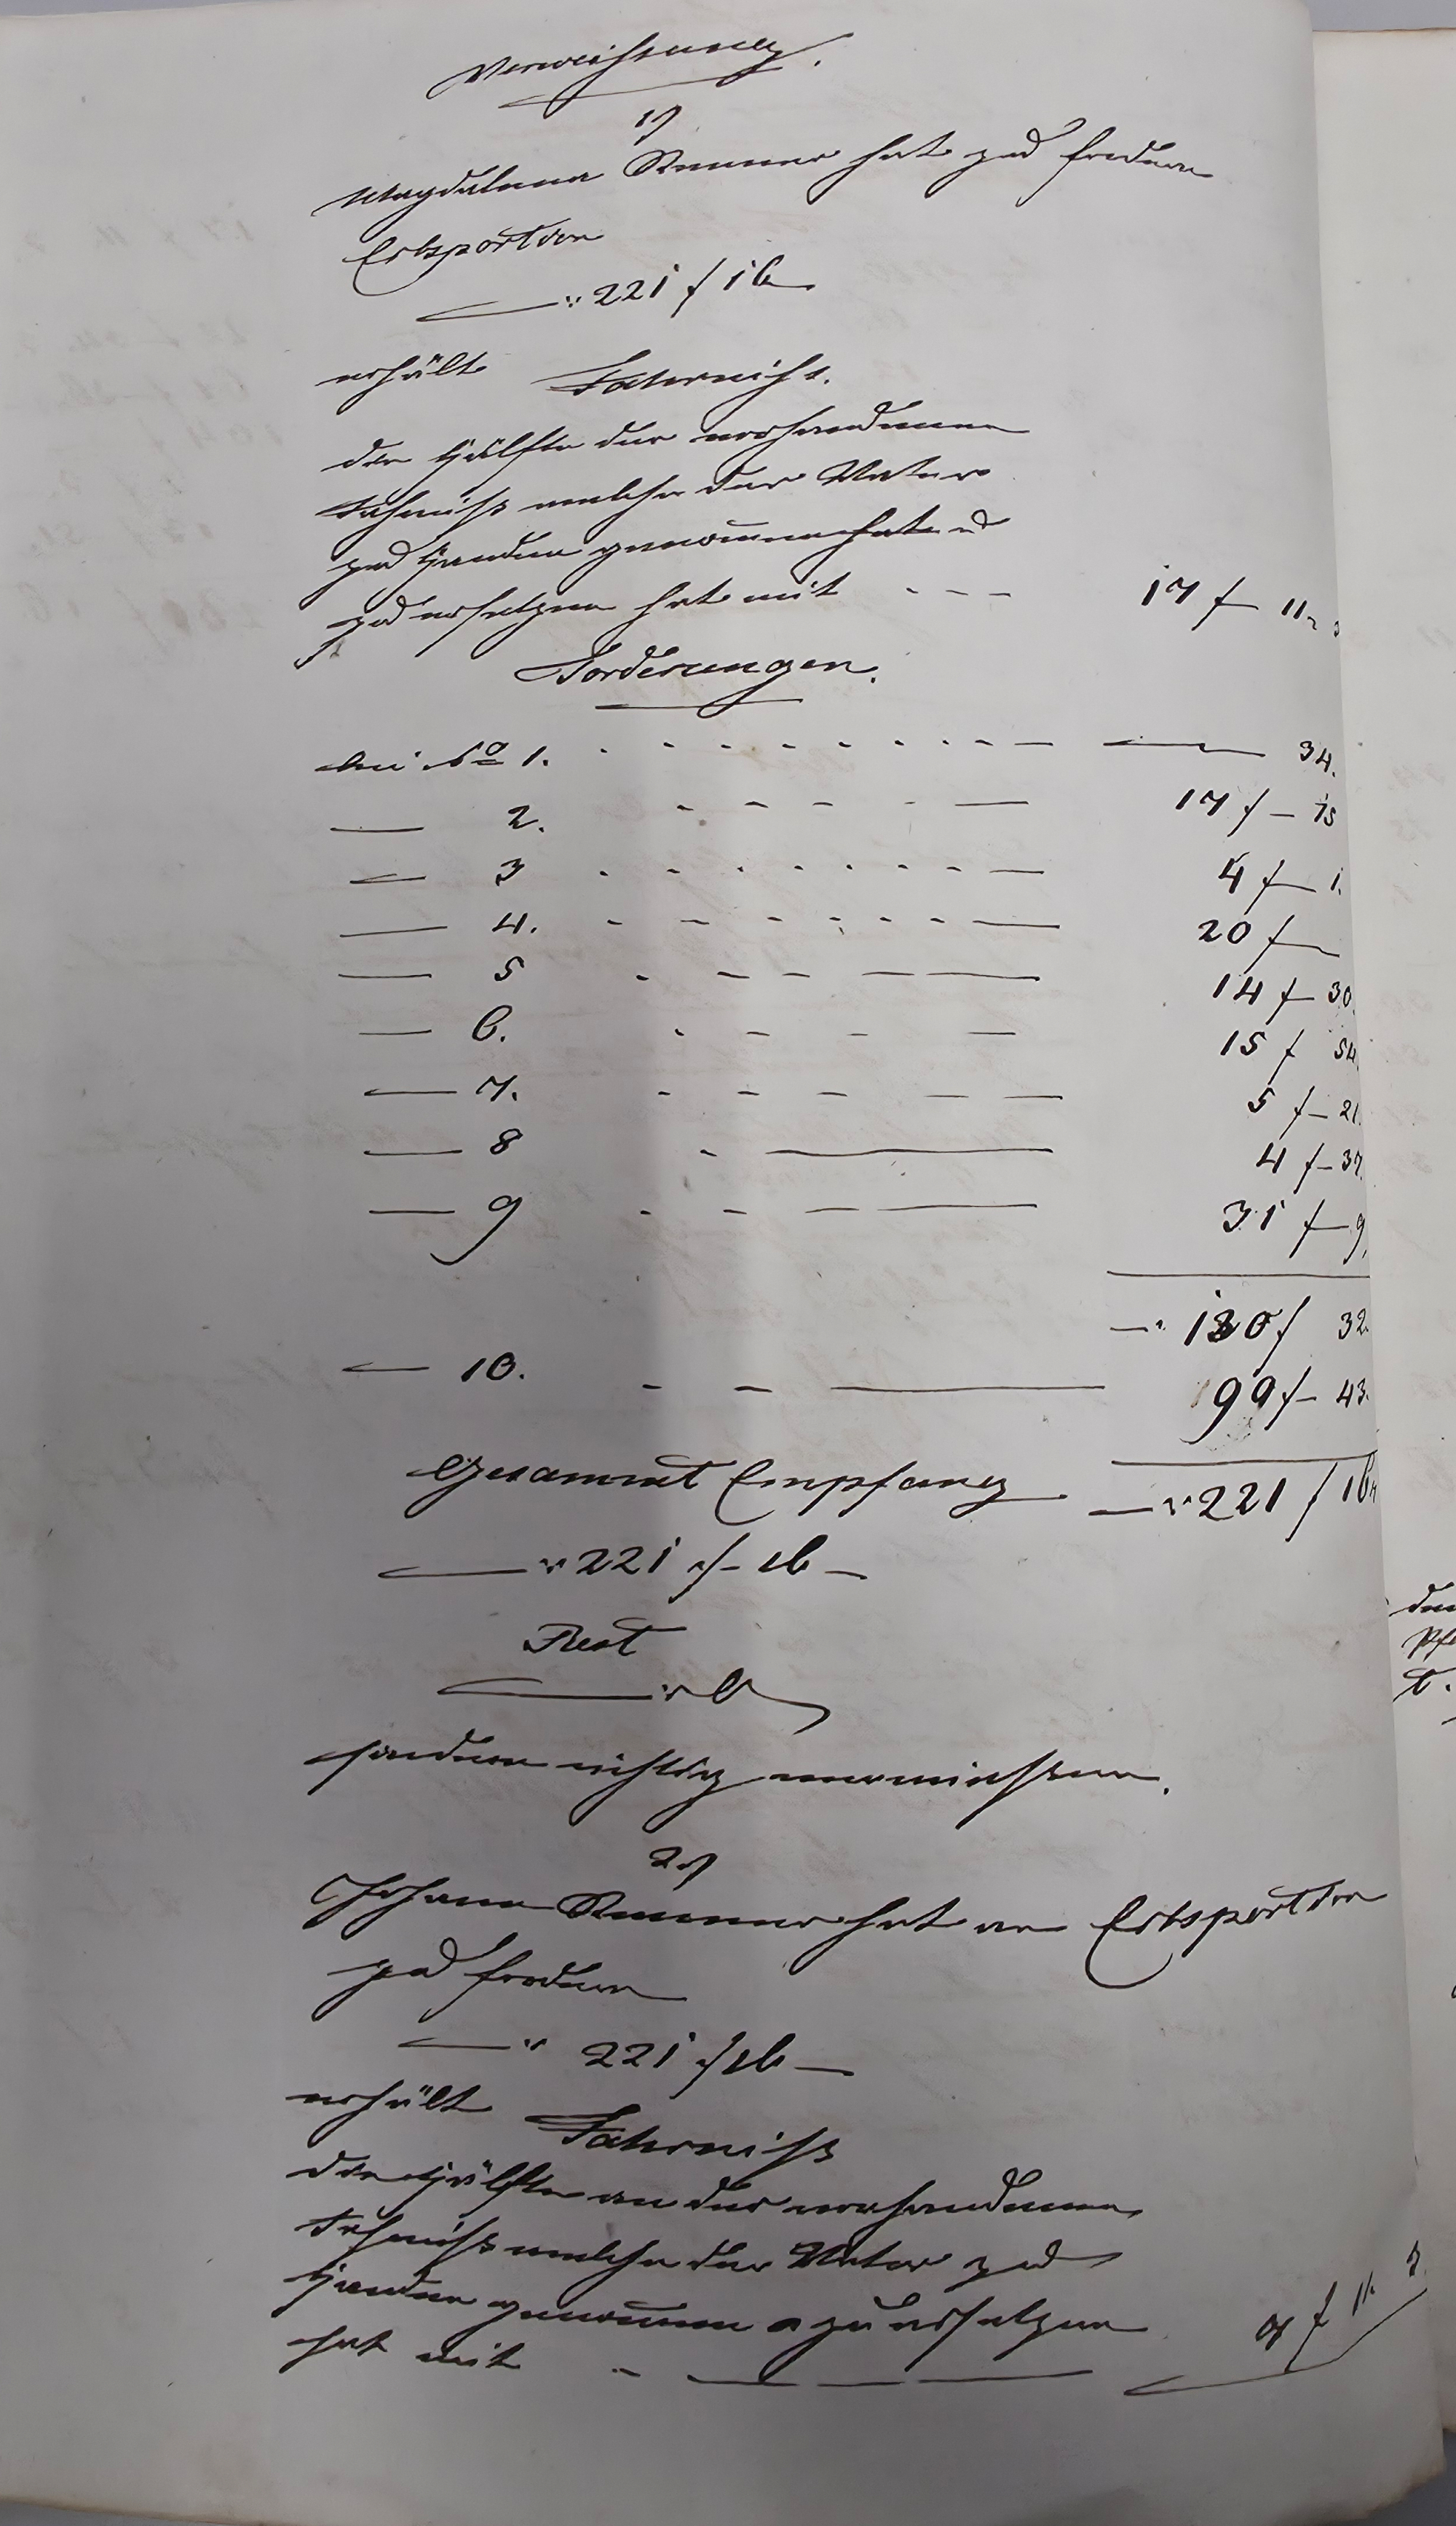 Verweisung.
1)
Magdalena Renner hat zu fordern
Erbsportion
" 221 f 16
erhält Fahrniss.
die Hälfte der vorhandenen
Fahrniß welche der Vater
zu Handen genommen hat u
zu ersetzen hat mit - - - 17 f — 11
Forderungen.
bei No 1. 34.
— 2. 17 f — 15
— 3 4 f — 1.
— 4. 20 f —
— 5 14 f — 30.
— 6. 15 f 54
— 7. 5 f — 21.
— 8 4 f — 37.
— 9 31 f — 9.
" 130 f 32.
— 10. 99 f — 43.
Gesammt Empfang — " 221 f 16
" 221 f — 16 —
Rest
" 0
sondern richtig verwiesen.
2)
Johann Renner hat an Erbsportion
zu fordern
" 221 f 16 —
erhält Fahrniß
die Hälfte an der vorhandenen
Fahrniß welche der Vater zu
Handen genommen u zu ersetzen
hat mit f 11.